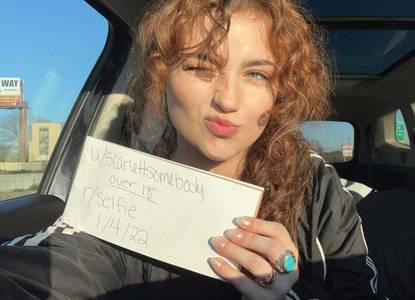 WAY
u/scarlettsomebody
over 18
r/selfie
1/4/22